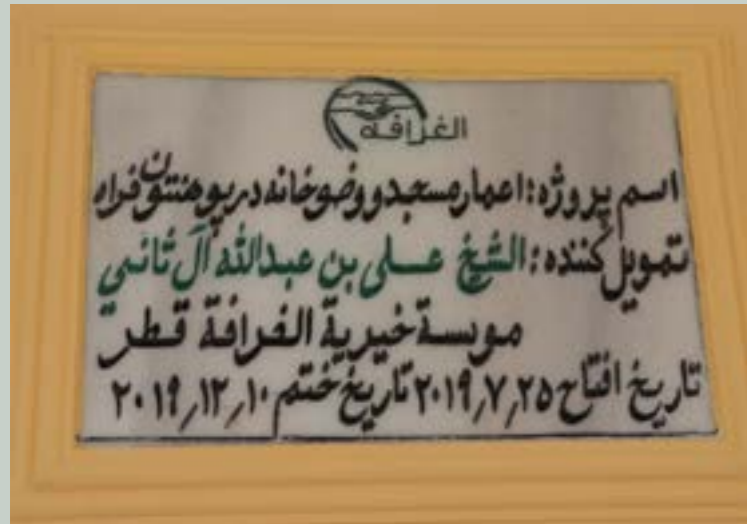 الغرافة
اسم پروژه: اعمار مسجد و وضوخانه در پوهنتون فراه
تمویل کننده: الشیخ علی بن عبدالله آل ثاني
موسسة خيرية الغرافة قطر
تاریخ افتتاح ۲۰۱۹٫۷٫۲۵ تاریخ ختم ۲۰۱۹٫۱۲٫۱۰